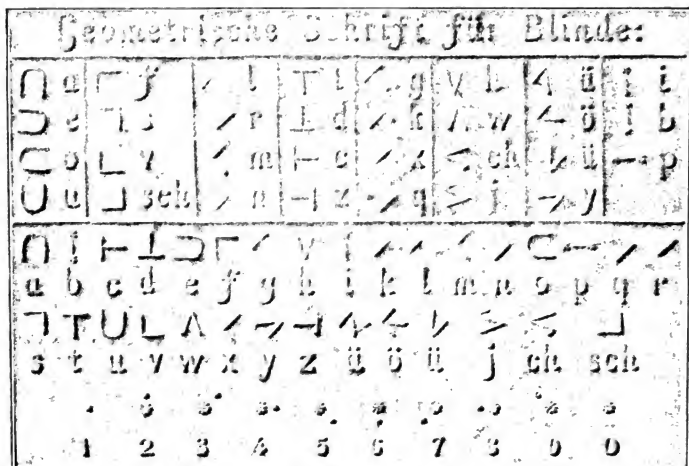 Geometrische Schrift für Blinde:
a f l t g h ä i
e s r d k w ö b
o v m c x ch ü p
u sch n z q j y
a b c d e f g h i k l m n o p q r
s t u v w x y z ä ö ü j ch sch
1 2 3 4 5 6 7 8 9 0